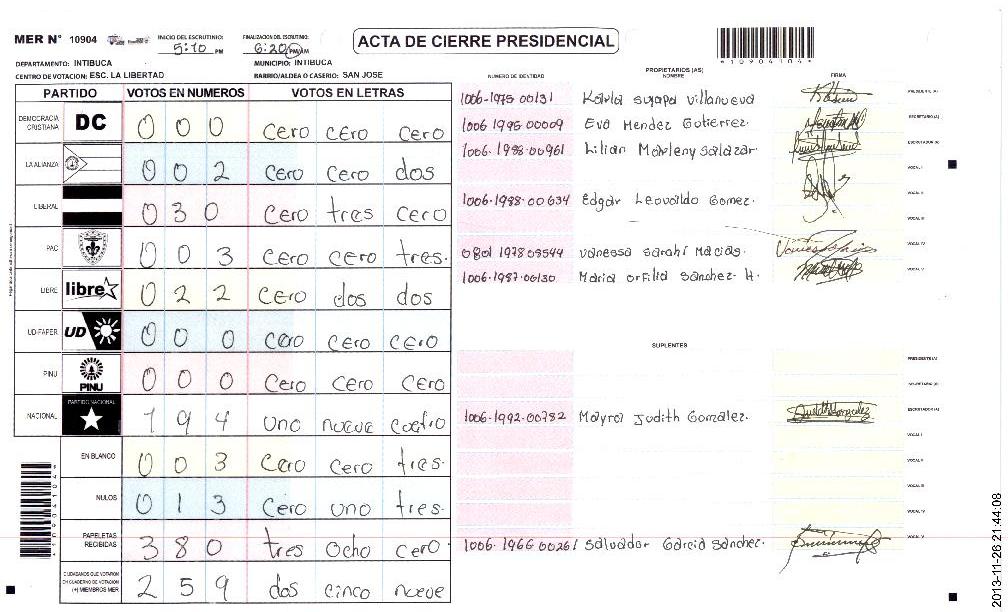 MER N° 10904
INICIO DEL ESCRUTINIO: 5:10 PM
FINALIZACION DEL ESCRUTINIO: 6:20 PM/AM
ACTA DE CIERRE PRESIDENCIAL
*10904104*
DEPARTAMENTO: INTIBUCA
MUNICIPIO: INTIBUCA
CENTRO DE VOTACION: ESC. LA LIBERTAD
BARRIO/ALDEA O CASERIO: SAN JOSE
PARTIDO VOTOS EN NUMEROS VOTOS EN LETRAS
DEMOCRACIA CRISTIANA DC 0 0 0 cero cero cero
LA ALIANZA 0 0 2 cero cero dos
LIBERAL 0 3 0 cero tres cero
PAC 0 0 3 cero cero tres.
LIBRE libre 0 2 2 cero dos dos
UD-FAPER UD 0 0 0 cero cero cero
PINU PINU 0 0 0 cero cero cero
NACIONAL PARTIDO NACIONAL 1 9 4 uno nueve cuatro
EN BLANCO 0 0 3 cero cero tres.
NULOS 0 1 3 cero uno tres.
PAPELETAS RECIBIDAS 3 8 0 tres ocho cero.
CIUDADANOS QUE VOTARON EN CUADERNO DE VOTACION (+) MIEMBROS MER 2 5 9 dos cinco nueve
NUMERO DE IDENTIDAD PROPIETARIOS (AS) NOMBRE FIRMA
1006-1975 00131 Karla suyapa villanueva PRESIDENTE (A)
1006 1995 00009 Eva Mendez Gutierrez. SECRETARIO (A)
1006-1988-00961 Lilian Marleny Salazar. ESCRUTADOR (A)
VOCAL I
1006-1988-00634 Edgar Leovaldo Gomez. VOCAL II
VOCAL III
0801 1978 09544 vanessa sarahi Macias. VOCAL IV
1006-1987-00130 Maria orfilia sanchez H. VOCAL V
SUPLENTES
PRESIDENTE (A)
SECRETARIO (A)
1006-1992-00782 Mayra Judith Gonzalez. ESCRUTADOR (A)
VOCAL I
VOCAL II
VOCAL III
VOCAL IV
1006-1966 00261 Salvador Garcia Sanchez. VOCAL V
2013-11-26 21:44:08